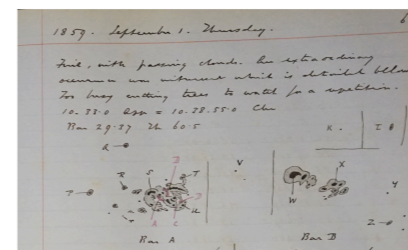 6
1859. September 1. Thursday.
Fine, with passing clouds. An extraordinary
occurrence was witnessed which is detailed below
Too busy cutting trees to watch for a repetition.
10.33.0 App = 10.38.55.0 Chr
Bar 29.27 Th 60.5
K. I θ
Q
S T V X
R
W
A U Y
Z
Bar A Bar B